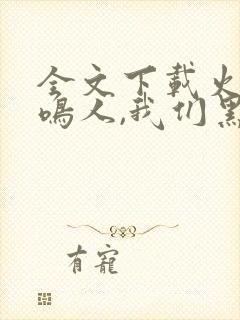 全文下载火
鸣人,我们黑
有宠